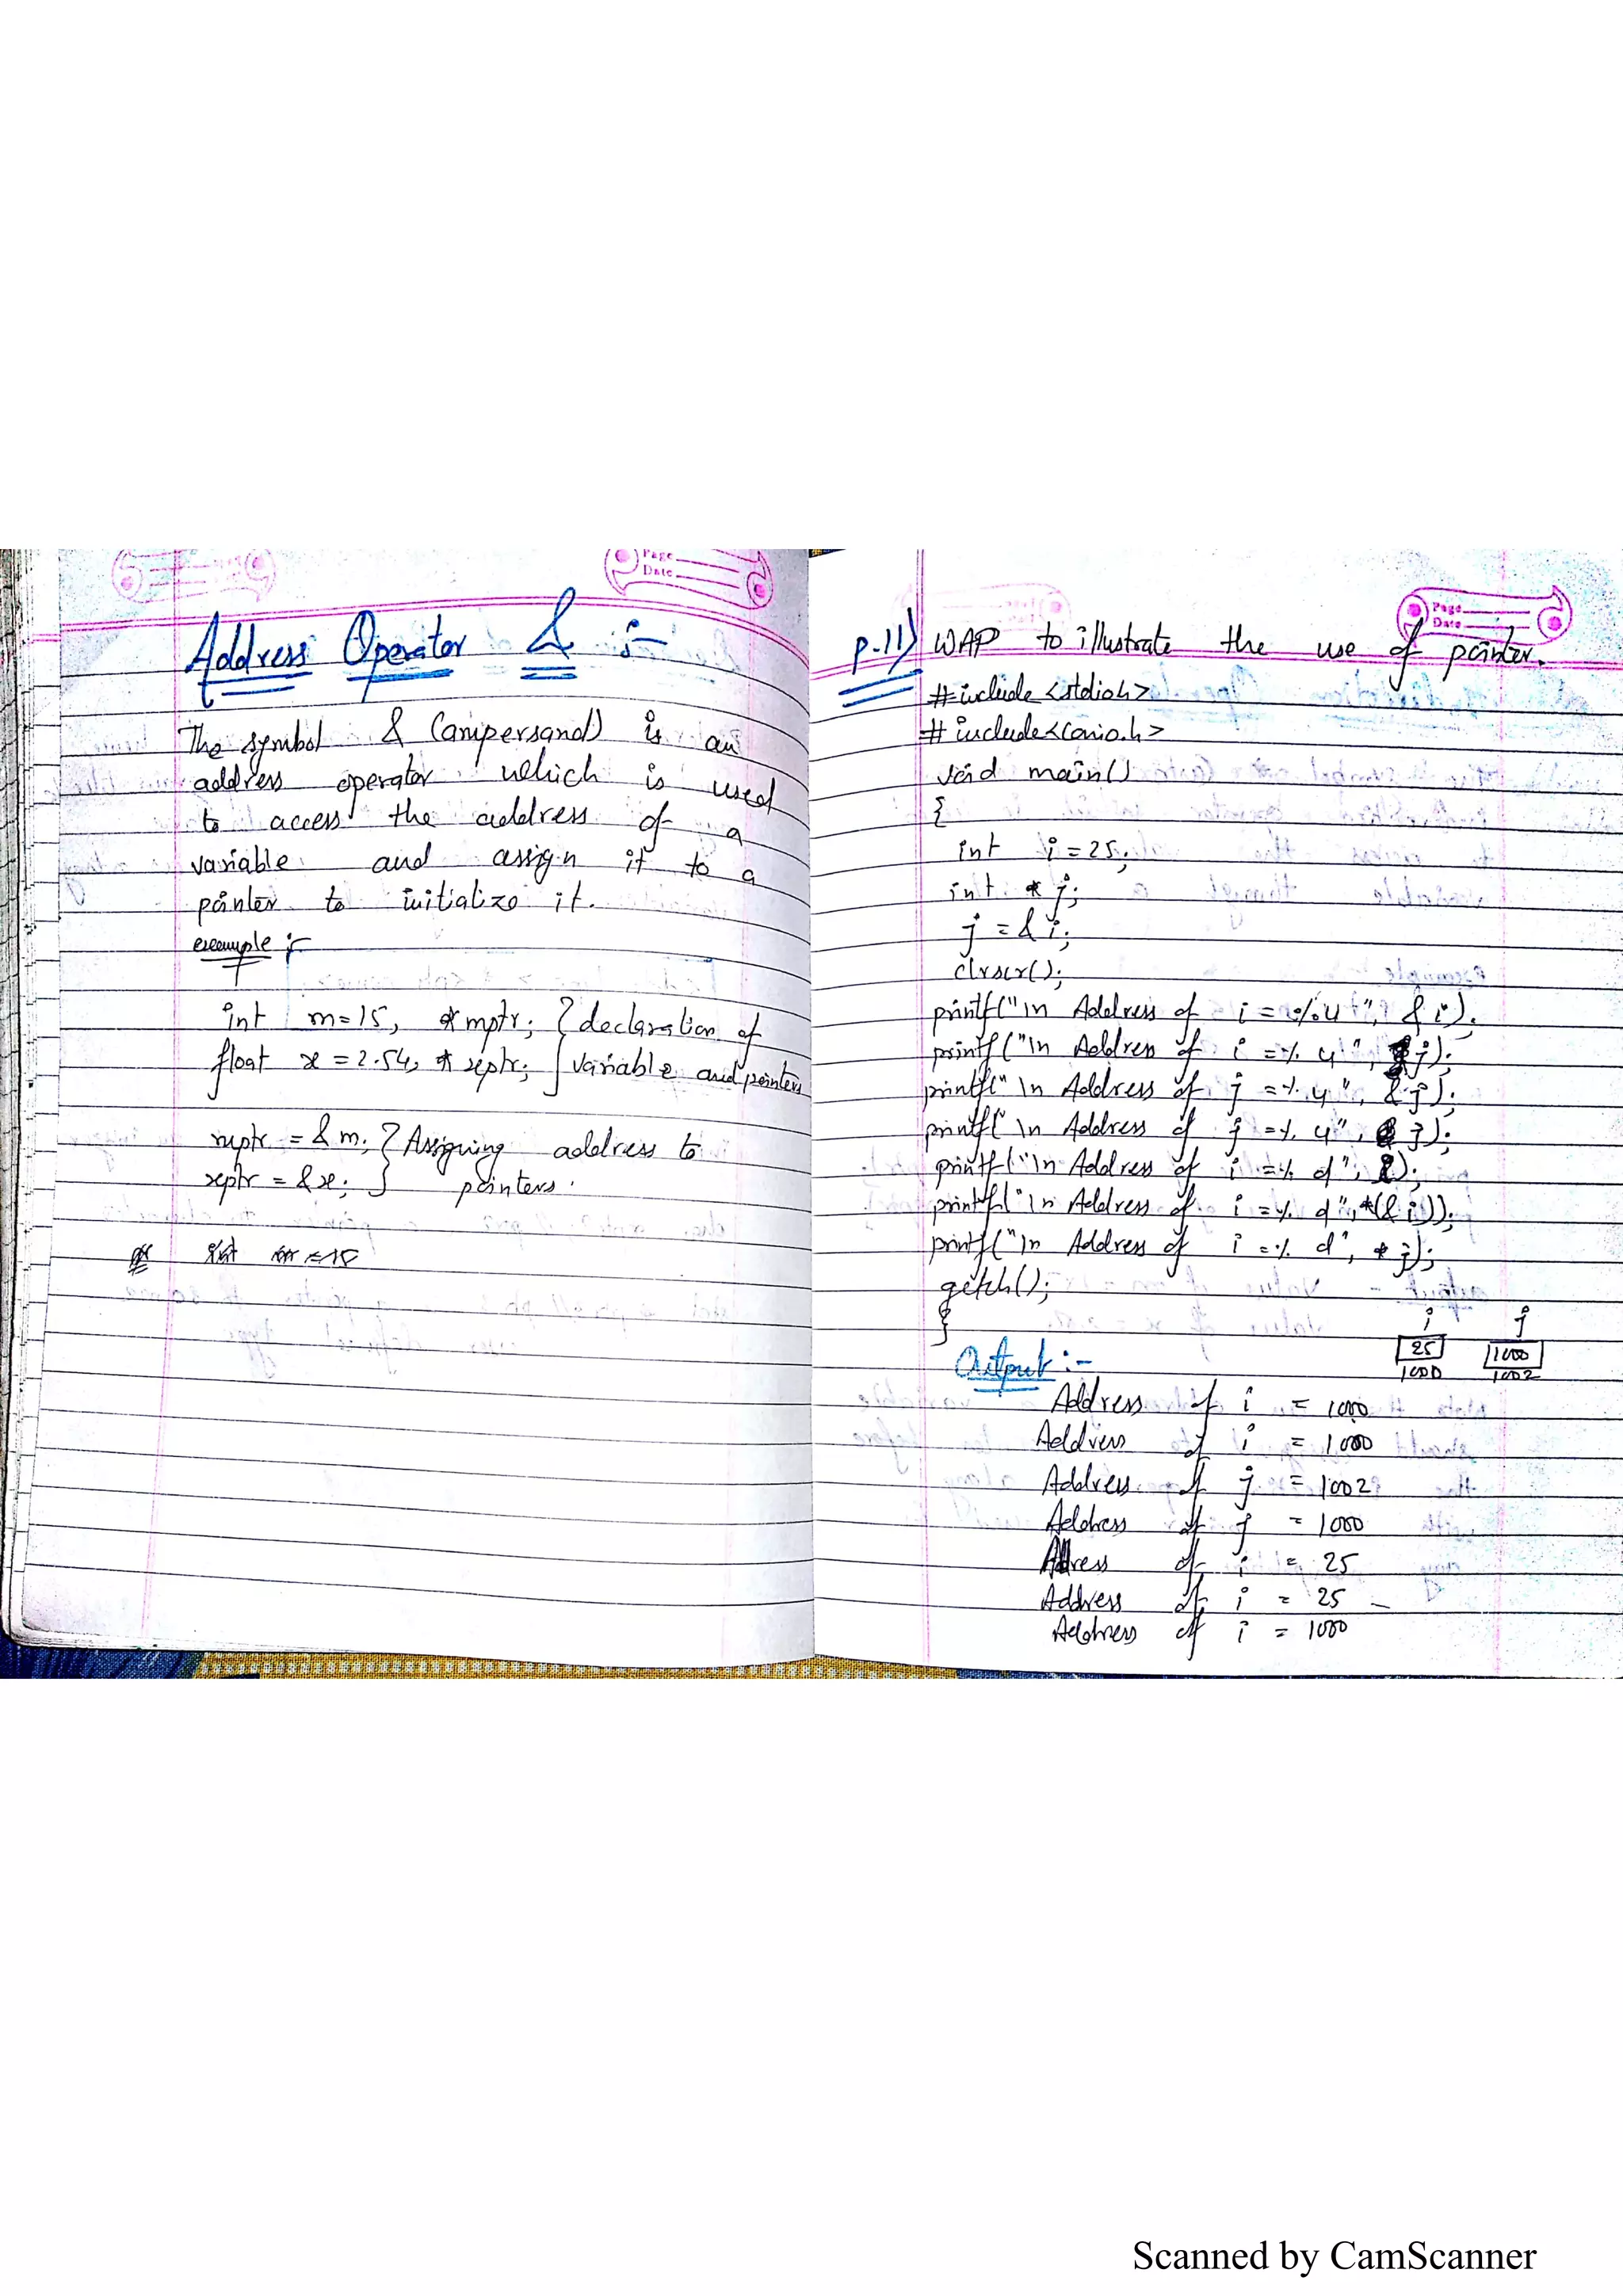 Page
Date
Address Operator & :-
The symbol & (ampersand) is an
address operator which is used
to access the address of a
variable and assign it to a
pointer to initialize it.
example :-
int m=15, *mptr; } declaration of
float x = 2.54, * xptr; } variable and pointers
mptr = & m; } Assigning address to
xptr = & x; } pointers.
Page
Date
p.11) WAP to illustrate the use of pointer.
#include <stdio.h>
#include<conio.h>
void main()
{
int i = 25;
int * j;
j = & i;
clrscr();
printf("\n Address of i = %u ", & i);
printf("\n Address of i = %u", j);
printf("\n Address of j = %u", & j);
printf("\n Address of j = %u", j);
printf("\n Address of i = %d", i);
printf("\n Address of i = %d", *(& i));
printf("\n Address of i = %d", * j);
getch();
}
i j
25 1000
1000 1002
Output :-
Address of i = 1000
Address of i = 1000
Address of j = 1002
Address of j = 1000
Address of i = 25
Address of i = 25
Address of i = 1000
Scanned by CamScanner